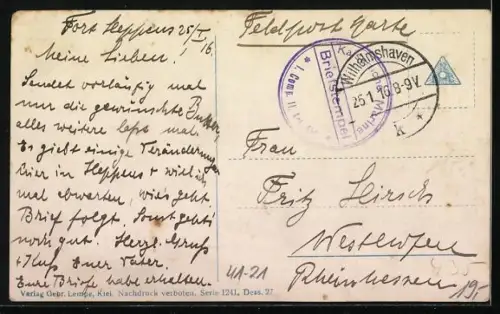 Fort Heppens 25/I 16.
Meine Lieben!
Sendet vorläufig mal
nur die gewünschte
alles weitere laßt mal.
Es giebt einige Veränderungen
hier in Heppens + will ich
mal abwarten, wie's geht.
Brief folgt. Sonst geht's
noch gut. Herzl. Gruß
+ Kuß Euer Vater.
Eure Briefe habe erhalten.
Feldpost Karte
Kais. Marine
Briefstempel
* I. Comp. II
Wilhelmshaven
25.1.16. 8-9V.
* k *
Frau
Fritz Hirsch
Westhofen
Rheinhessen
41-21
435
19,-
Verlag Gebr. Lempe, Kiel. Nachdruck verboten. Serie 1241, Dess. 27